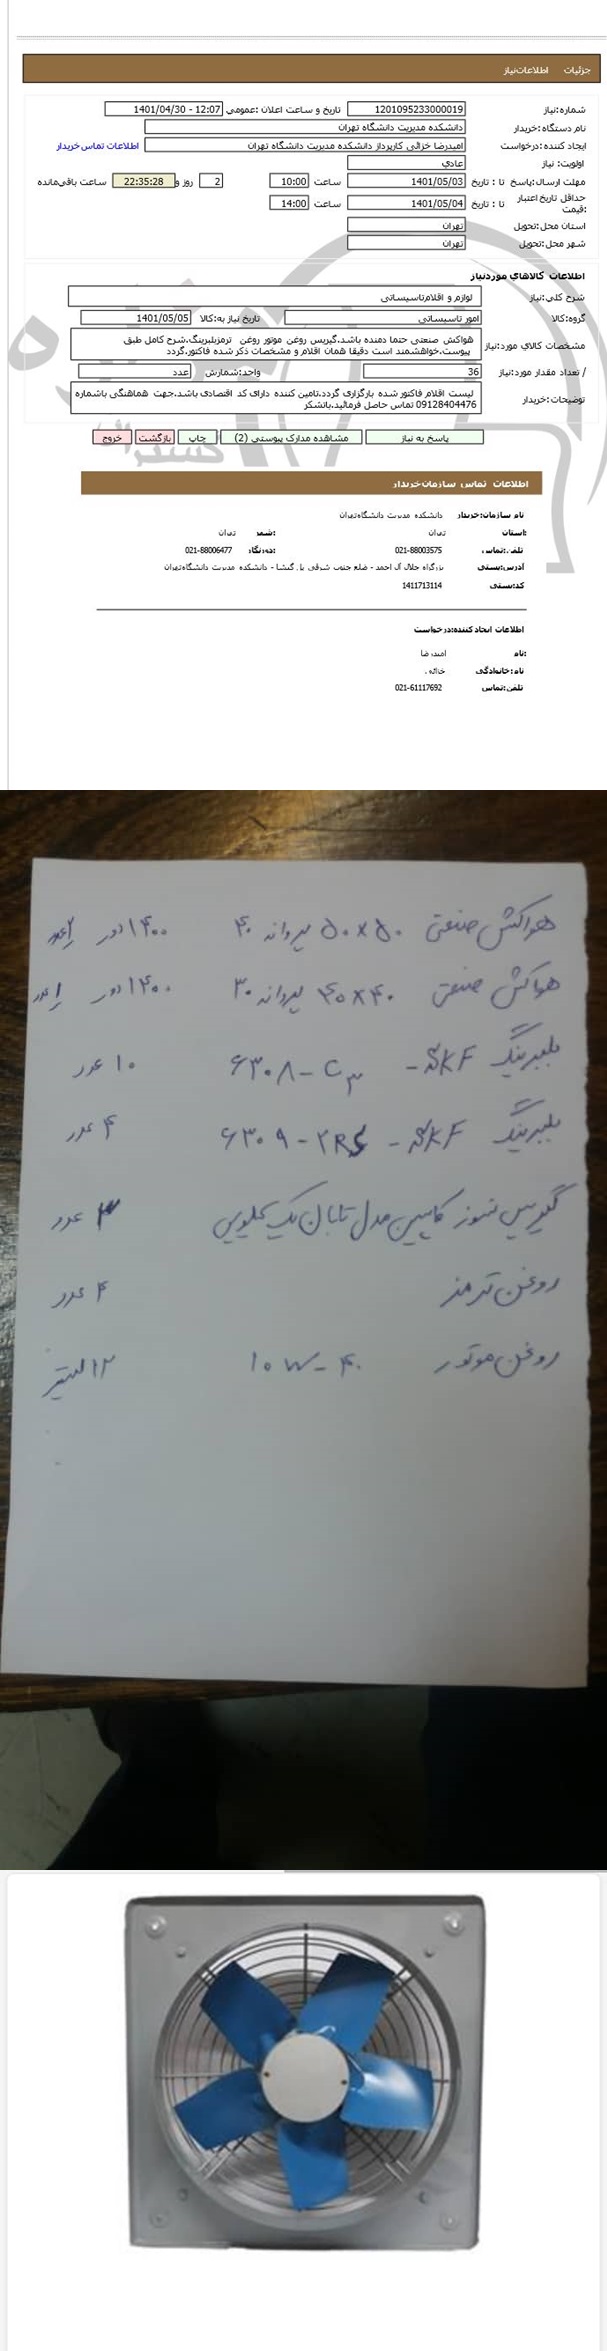 جزئیات اطلاعات نیاز
شماره نیاز: 1201095233000019 تاریخ و ساعت اعلان عمومی: 1401/04/30 - 12:07
نام دستگاه خریدار: دانشکده مدیریت دانشگاه تهران
ایجاد کننده درخواست: امیدرضا خزائی کارپرداز دانشکده مدیریت دانشگاه تهران اطلاعات تماس خریدار
اولویت نیاز: عادی
مهلت ارسال پاسخ تا تاریخ: 1401/05/03 ساعت 10:00 2 روز و 22:35:28 ساعت باقی مانده
حداقل تاریخ اعتبار قیمت: تا تاریخ: 1401/05/04 ساعت 14:00
استان محل تحویل: تهران
شهر محل تحویل: تهران
اطلاعات کالاهای مورد نیاز
شرح کلی نیاز: لوازم و اقلام تاسیساتی
گروه کالا: امور تاسیساتی تاریخ نیاز به کالا: 1401/05/05
مشخصات کالای مورد نیاز: هواکش صنعتی حتما دمنده باشد.گیریس روغن موتور روغن ترمزبلبرینگ.شرح کامل طبق
پیوست.خواهشمند است دقیقا همان اقلام و مشخصات ذکر شده فاکتور.گردد
/ تعداد مقدار مورد نیاز: 36 واحد شمارش: عدد
توضیحات خریدار: لیست اقلام فاکتور شده بارگزاری گردد.تامین کننده دارای کد اقتصادی باشد.جهت هماهنگی باشماره
09128404476 تماس حاصل فرمائید.باتشکر
پاسخ به نیاز مشاهده مدارک پیوستی (2) چاپ بازگشت خروج
اطلاعات تماس سازمان خریدار
نام سازمان خریدار: دانشکده مدیریت دانشگاه تهران
استان: تهران شهر: تهران
تلفن تماس: 021-88003575 دورنگار: 021-88006477
آدرس پستی: بزرگراه جلال آل احمد - ضلع جنوب شرقی پل گیشا - دانشکده مدیریت دانشگاه تهران
کد پستی: 1411713114
اطلاعات ایجاد کننده درخواست:
نام: امیدرضا
نام خانوادگی: خزائی
تلفن تماس: 021-61117692
هواکش صنعتی ۵۰×۵۰ پروانه ۴۰ ۱۴۰۰ دور عدد
هواکش صنعتی ۴۰×۴۰ پروانه ۳۰ ۱۴۰۰ دور ۱ عدد
بلبرینگ SKF - ۶۳۰۸-C۳ ۱۰ عدد
بلبرینگ SKF - ۶۳۰۹-۲RS ۴ عدد
گیریس نسوز کاسپین مدل تابان یک کیلویی عدد
روغن ترمز ۴ عدد
روغن موتور ۱۰W-۴۰ ۱۲ لیتر